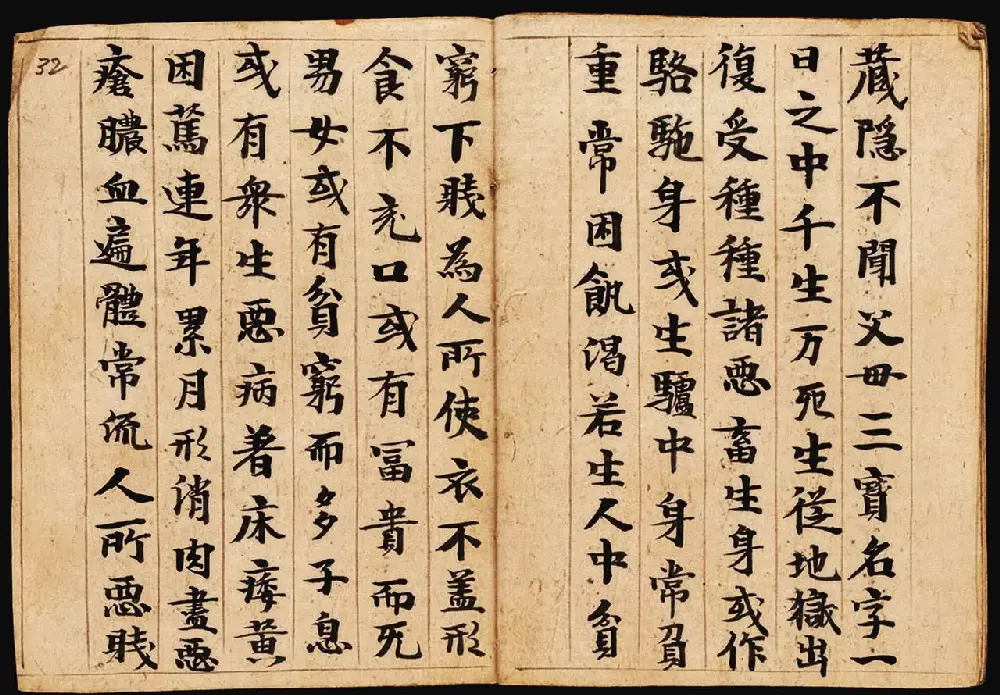 藏隱不聞父母三寶名字一
日之中千生万死生從地獄出
復受種種諸惡畜生身或作
駱駞身或生驢中身常負
重常困飢渴若生人中貧
窮下賤為人所使衣不盖形
食不充口或有冨貴而无
男女或有貧窮而多子息
或有衆生惡病著床痿黃
困篤連年累月形消肉盡惡
瘡膿血遍體常流人所惡賤
32